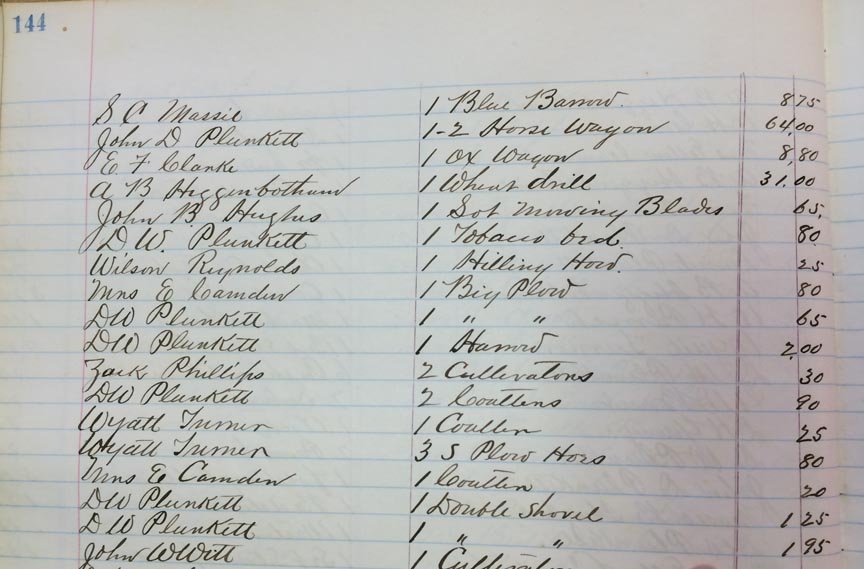 144
S C Massie 1 Blue Barrow. 8 75
John D Plunkett 1-2 Horse Wagon 64.00
E F Clarke 1 Ox Wagon 8,80
A B Higgenbotham 1 Wheat drill 31.00
John B. Hughes 1 Set Mowing Blades 65.
D W. Plunkett 1 Tobacco bed. 80.
Wilson Reynolds 1 Hilling How. 25
Mrs E Camden 1 Big Plow 80
DW Plunkett 1 " " 65
DW Plunkett 1 Harrow 2,00
Zack Phillips 2 Cultivators 30
DW Plunkett 2 Coulters 90
Wyatt Turner 1 Coulter 25
Wyatt Turner 3 S Plow Hoes 80
Mrs E Camden 1 Coulter 20
DW Plunkett 1 Double Shovel 1 25
DW Plunkett 1 " " 1 95
John W Witt 1 Cultivator